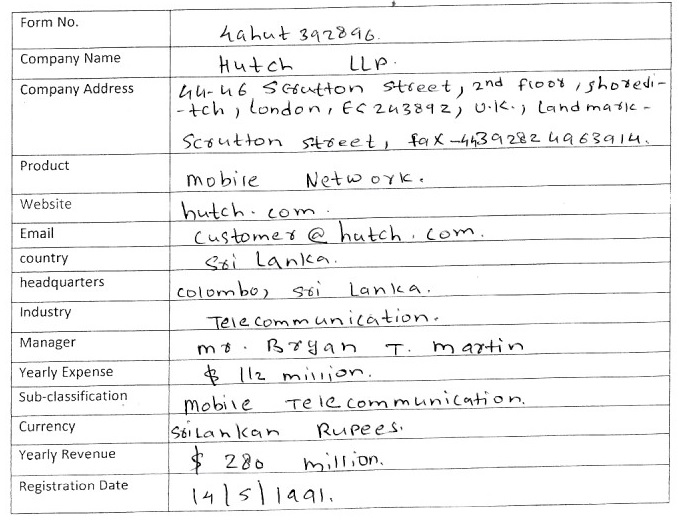 Form No. 4ahut 392896.
Company Name Hutch LLP.
Company Address 44-46 Scrutton Street, 2nd floor, shoredi-
-tch, London, EC243892, U.K., Landmark-
Scrutton street, fax-44392824963914.
Product mobile Network.
Website hutch.com.
Email customer@hutch.com.
country Sri Lanka.
headquarters colombo, sri Lanka.
Industry Telecommunication.
Manager mr. Bryan T. martin
Yearly Expense $ 112 million.
Sub-classification mobile Telecommunication.
Currency Srilankan Rupees.
Yearly Revenue $ 280 million.
Registration Date 14/5/1991.